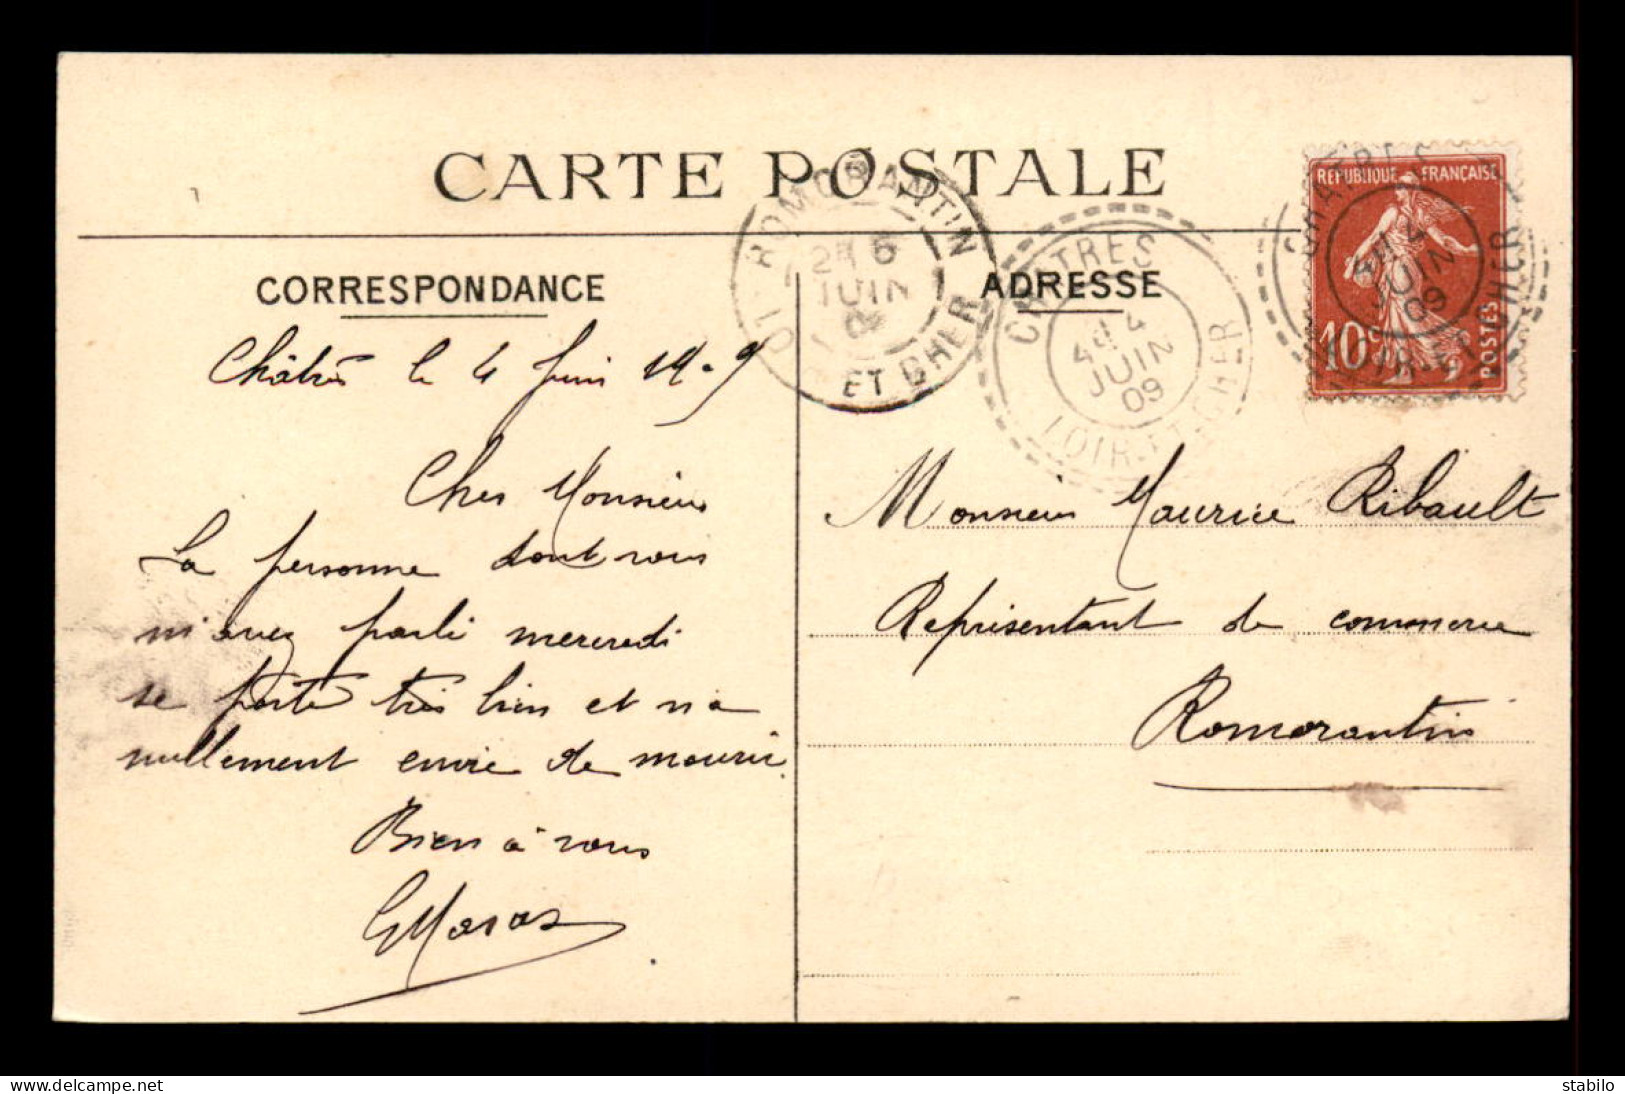 CARTE POSTALE
CORRESPONDANCE
Châtres le 4 Juin 1909
Cher Monsieur
La personne dont vous
m'avez parlé mercredi
se porte très bien et n'a
nullement envie de mourir.
Bien à vous
ADRESSE
Monsieur Maurice Ribault
Représentant de commerce
Romorantin
ROMORANTIN
2E 6
JUIN
ET CHER
CHATRES
4E 4
JUIN
09
LOIR-ET-CHER
REPUBLIQUE FRANÇAISE
10c
POSTES
JUIN
09
stabilo
2024-06-25 12:14:24